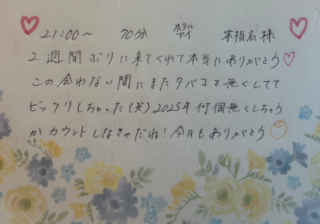 21:00～ 70分 ホテル アイ 本指名様
2週間ぶりに来てくれて本当にありがとう
この会わない間にまたタバコを無くしてて
ビックリしちゃった(笑)2025年何個無くしちゃう
かカウントしなきゃだね!今日もありがとう